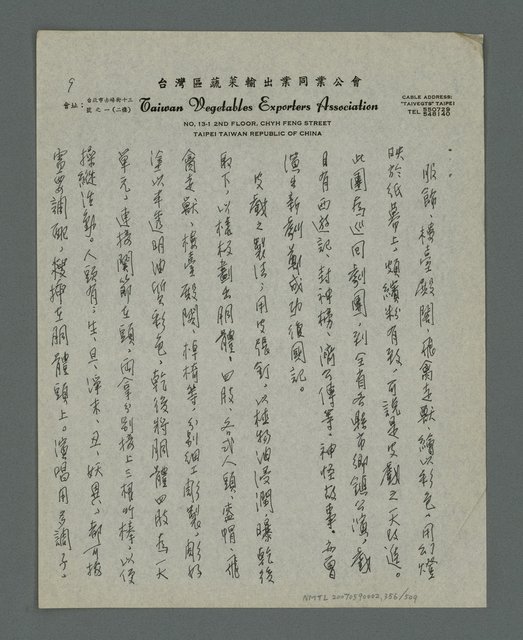 9
台灣區蔬菜輸出業同業公會
會址：台北市赤峰街十三號之一（二樓）
Taiwan Vegetables Exporters Association
NO. 13-1 2ND FLOOR, CHYH FENG STREET
TAIPEI TAIWAN REPUBLIC OF CHINA
CABLE ADDRESS:
"TAIVEGTS" TAIPEI
TEL 550729
548140
服飾、樓臺殿閣、飛禽走獸繪以彩色，用幻燈
映於紙幕上。頗繽紛有致，可說是皮戲之一大改進。
此團為巡回劇團，到全省各縣市鄉鎮公演，戲
目有西遊記、封神榜、濟公傳等、神怪故事，亦曾
演出新劇鄭成功復國記。
皮戲之製法，用皮張釘，以植物油浸潤，曝乾後
取下，以樣板劃出胴體，四肢、各式人頭，盔帽、飛
禽走獸，樓臺殿閣，棹椅等，分別細工彫製，彫好
塗以半透明油質彩色，乾後將胴體四肢為一大
單元，連接關節至頭，兩拿分別接上三根竹棒，以便
操縱活動。人頭有：生、旦、淨末、丑、妖異，都可按
需要調配，插在胴體頭上。演唱用多調子。
NMTL 20070590002, 356/509